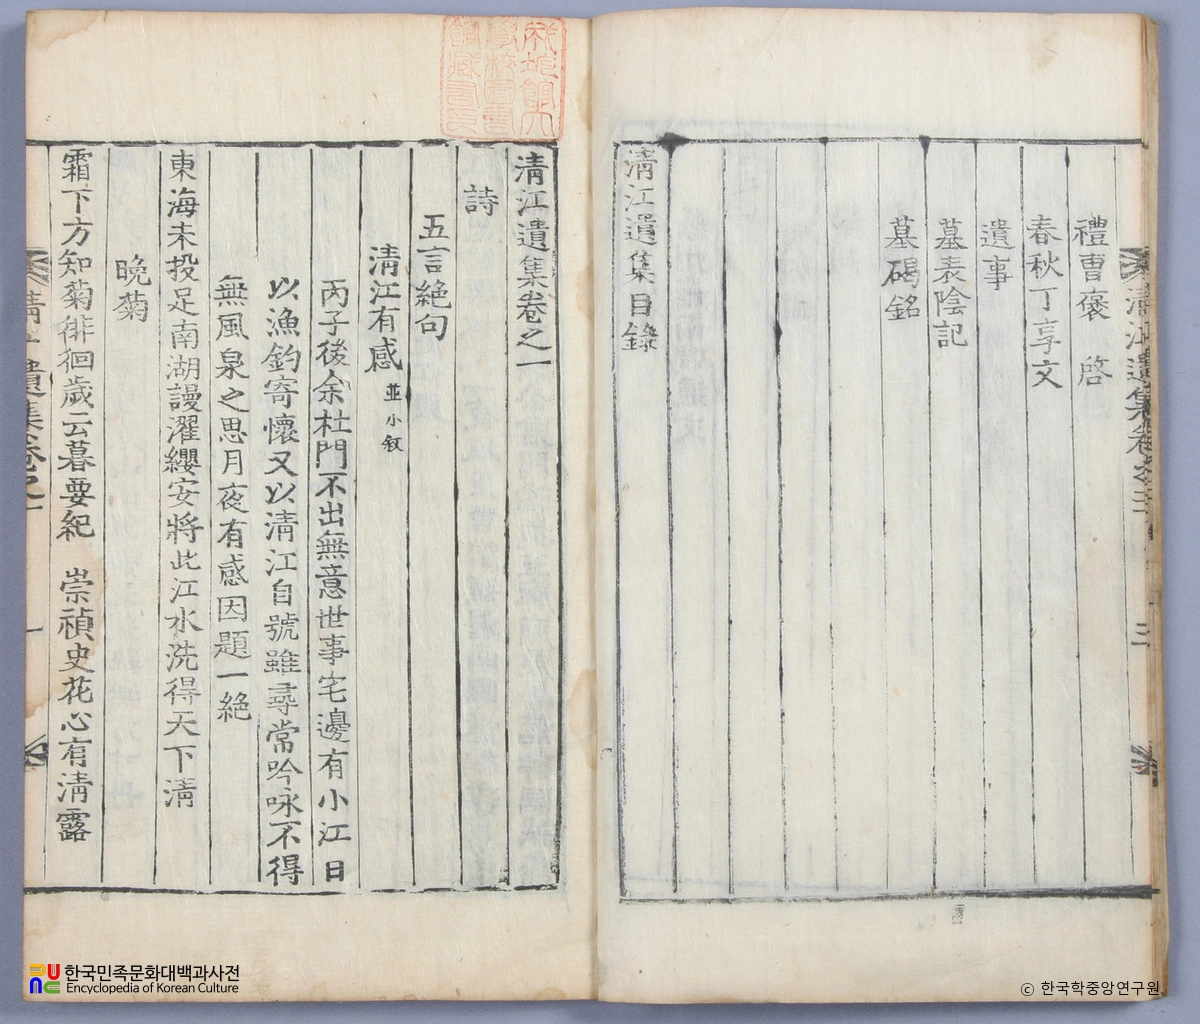 禮曹褒 啓
春秋丁享文
遺事
墓表陰記
墓碣銘
清江遺集目錄
清江遺集卷之一
詩
五言絕句
清江有感 並小叙
丙子後余杜門不出無意世事宅邊有小江日
以漁釣寄懷又以清江自號雖尋常吟咏不得
無風泉之思月夜有感因題一絕
東海未投足南湖謾濯纓安將此江水洗得天下清
晚菊
霜下方知菊徘徊歲云暮要紀 崇禎史花心有清露
한국민족문화대백과사전
Encyclopedia of Korean Culture
ⓒ 한국학중앙연구원.